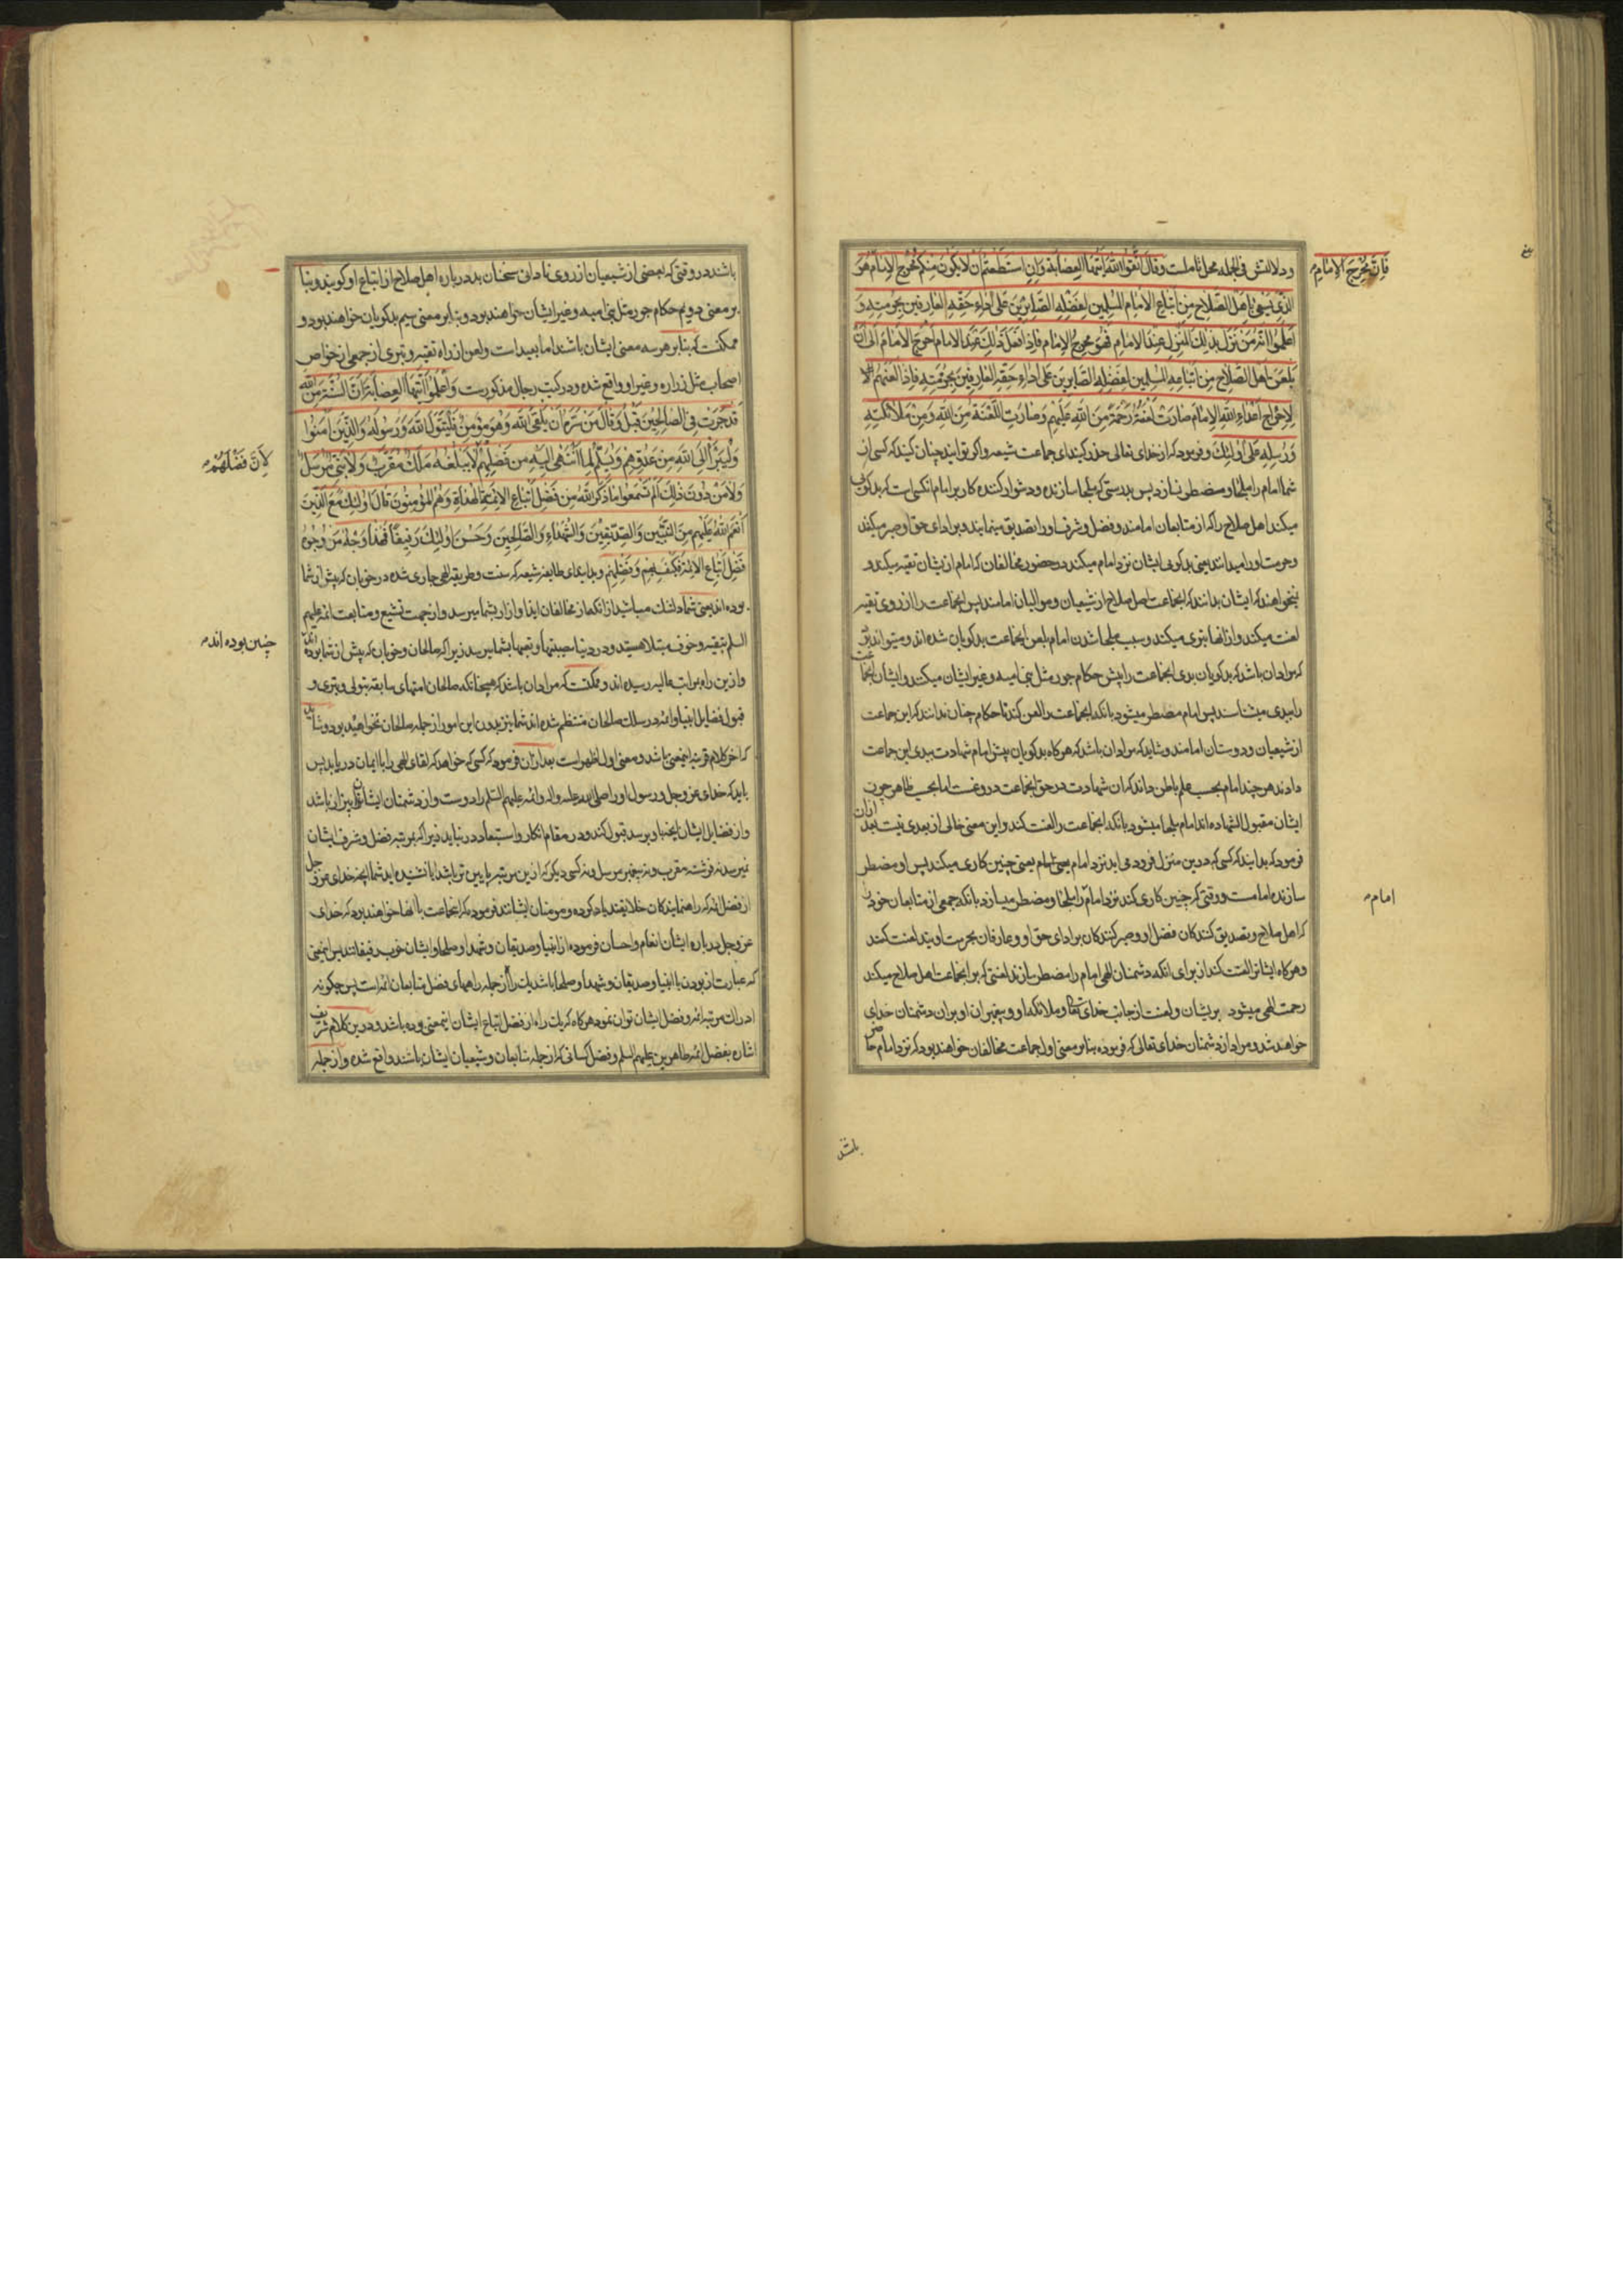 ودلالتش فی الجمله محل تاملست وَقالَ اتَّقُوا اللهَ اَیَّتُهَا العِصابَة وَاِنِ استَطَعتُم اَن لا یَکُونَ مِنکُم مُحرِجُ الاِمامِ
فَاِنَّ مُحْرِجَ الاِمامِ هُوَ
الَّذی یَسعی بِاَهلِ الصَّلاحِ مِن اَتباعِ الاِمامِ المُسَلِّمینَ لِفَضلِهِ الصّابِرینَ عَلی اَداءِ حَقِّهِ العارِفینَ بِحُرمَتِهِ وَ
اعلَمُوا اَنَّهُ مَن نَزَلَ بِذلِکَ المَنزِلِ عِندَ الاِمامِ فَهُوَ مُحرِجُ الاِمامِ فَاِذا فَعَلَ ذلِکَ عِندَ الاِمامِ اَحرَجَ الاِمامَ اِلی اَن
یَلعَنَ اَهلَ الصَّلاحِ مِن اَتباعِهِ المُسَلِّمینَ لِفَضلِهِ الصّابِرینَ عَلی اَداءِ حَقِّهِ العارِفینَ بِحُرمَتِهِ فَاِذا لَعَنَهُم
لِاِحراجِ اَعداءِ اللهِ الاِمامَ صارَت لَعنَتُهُ رَحمَةً مِنَ اللهِ عَلَیهِم وَصارَتِ اللَّعنَةُ مِنَ اللهِ وَمِن مَلائِکَتِهِ
وَرُسُلِهِ عَلی اُولئِکَ وفرمود که از خدای تعالی حذر کنید ای جماعت شیعه واکر توانید چنان کنید که کسی از
شما امام را ملجا و مضطر نسازد پس بدرستی که ملجا سازنده و دشوار کننده کار بر امام انکسی است که بدکویی
میکند اهل صلاح را که از متابعان امامند وفضل و شرف او را تصدیق مینمایند و بر ادای حق او صبر میکنند
وحرمت او را میدانند یعنی بدکویی ایشان نزد امام میکند در حضور مخالفان که امام از یشان تقیه میکند و
نمیخواهند که ایشان بدانند که انجماعت اهل صلاح از شیعیان و موالیان امامند پس انجماعت را از روی تقیه
لعنت میکند واز انها تبری میکند و سبب ملجا شدن امام بلعن انجماعت بدکویان شده اند ومیتواند بود
که مراد ان باشد که بدکویان بدی انجماعت را پیش حکام جور مثل بنی امیه و غیر ایشان میکند و ایشان انجماعت
را ببدی میشناسند پس امام مضطر میشود بانکه انجماعت را لعن کند تا حکام چنان ندانند که این جماعت
از شیعیان و دوستان امامند و شاید که مراد ان باشد که هرکاه بدکویان پیش امام شهادت ببدی این جماعت
دادند هرچند امام بحسب علم باطن داند که ان شهادت در حق انجماعت دروغست اما بحسب ظاهر چون
ایشان مقبول الشهاده اند امام ملجا میشود بانکه انجماعت را لعنت کند واین معنی خالی از بعدی نیست بعد ازان
فرمود که بدانید که کسی که درین منزل فرود می اید نزد امام یعنی چنین کاری میکند پس او مضطر
سازنده امامست و وقتی که چنین کاری کند نزد امام امام را ملجا و مضطر میسازد بانکه جمعی از متابعان خود را
که اهل صلاح و تصدیق کنندکان فضل او و صبر کنندکان بر ادای حق او و عارفان بحرمت اویند لعنت کند
وهرکاه ایشانرا لعنت کند از برای انکه دشمنان الهی امام را مضطر سازند لعنتی که بر انجماعت اهل صلاح میکند
رحمت الهی میشود بریشان و لعنت از جانب خدای تعالی و ملائکه او و پیغمبران او بران دشمنان خدای
خواهد شد و مراد از دشمنان خدای تعالی که فرموده بنابر معنی اول جماعت مخالفان خواهند بود که نزد امام حاضر
باشند
باشند در وقتی که بعضی از شیعیان از روی نادانی سخنان بد درباره اهل صلاح از اتباع او کویند و بنا
بر معنی دویم حکام جور مثل بنی امیه و غیر ایشان خواهند بود و بنابر معنی سیم بدکویان خواهند بود و
ممکنست که بنابر هر سه معنی ایشان باشند اما بعید است و لعن از راه تقیه و تبری از جمعی از خواص
اصحاب مثل زراره و غیر او واقع شده و در کتب رجال مذکورست وَاعلَمُوا اَیَّتُهَا العِصابَةُ اَنَّ السُّنَّةَ مِنَ اللهِ
قَد جَرَت فِی الصّالِحینَ قَبلُ وَقالَ مَن سَرَّهُ اَن یَلقَی اللهَ وَهُوَ مُؤمِنٌ فَلیَتَوَلَّ اللهَ وَرَسُولَهُ وَالَّذینَ آمَنُوا
وَلیَبرَأ اِلَی اللهِ مِن عَدُوِّهِم وَیُسَلِّم لِمَا انتَهی اِلَیهِ مِن فَضلِهِم لِاَنَّ فَضْلَهُم لا یَبلُغُهُ مَلَکٌ مُقَرَّبٌ وَلا نَبِیٌّ مُرسَلٌ
وَلا مَن دُونَ ذلِکَ اَلَم تَسمَعُوا ما ذَکَرَ اللهُ مِن فَضلِ اَتباعِ الاَئِمَّةِ الهُداةِ وَهُمُ المُؤمِنُونَ قالَ اُولئِکَ مَعَ الَّذینَ
اَنعَمَ اللهُ عَلَیهِم مِنَ النَّبِیّینَ وَالصِّدّیقینَ وَالشُّهَداءِ وَالصّالِحینَ وَحَسُنَ اُولئِکَ رَفیقاً فَهذا وَجهٌ مِن وُجُوهِ
فَضلِ اَتباعِ الاَئِمَّةِ فَکَیفَ بِهِم وَفَضلِهِم وبدانید ای طایفه شیعه که سنت و طریقه الهی جاری شده در خوبان که پیش از شما
بوده اند یعنی شما دلتنک مباشید از انکه از مخالفان ایذا و ازار بشما میرسد و از جهت تشیع و متابعت ائمه علیهم
السلم بتقیه و خوف مبتلا هستید و در دنیا مصیبتها و تعبها بشما میرسد زیرا که صالحان و خوبان که پیش از شما بوده اند
چنین بوده اند
وازین راه بمراتب عالیه رسیده اند و ممکنست که مراد ان باشد که همچنانکه صالحان امتهای سابقه بتولی و تبری و
قبول فضایل انبیا و ائمه در سلک صالحان منتظم شده اند شما نیز بدون این امور از جمله صالحان نخواهید بود و شاید
که اخر کلام قرینه اینمعنی باشد و معنی اول اظهر است بعد ازان فرمود که کسی که خواهد که لقای الهی را با ایمان دریابد پس
باید که خدای عز و جل و رسول او را صلی الله علیه واله و ائمه علیهم السلم را دوست و از دشمنان ایشان بیزار باشد
واز فضایل ایشان انچه باو برسد قبول کند و در مقام انکار و استبعاد در نیاید زیرا که بمرتبه فضل و شرف ایشان
نمیرسد نه فرشته مقرب و نه پیغمبر مرسل و نه کسی دیکر که ازین مرتبه پایین تر باشد ایا نشنیده اید شما انچه خدای عز و جل
از فضل ائمه که راهنمایندکان خلایقند یاد کرده و مومنان ایشانند فرموده که انجماعت با انها خواهند بود که خدای
عز وجل درباره ایشان انعام و احسان فرموده از انبیا و صدیقان و شهدا و صلحا و ایشان خوب رفیقانند پس اینمعنی
که عبارت از بودن با انبیا و صدیقان و شهدا و صلحا باشد یک راه از جمله راههای فضل متابعان ائمه است پس چکونه
ادراک مرتبه ائمه و فضل ایشان توان نمود هرکاه که یک راه از فضل اتباع ایشان اینمعنی بوده باشد و درین کلام شریف
اشاره بفضل ائمه طاهرین علیهم السلم و فضل کسانی که از جمله متابعان و شیعیان ایشان باشند واقع شده و از جمله